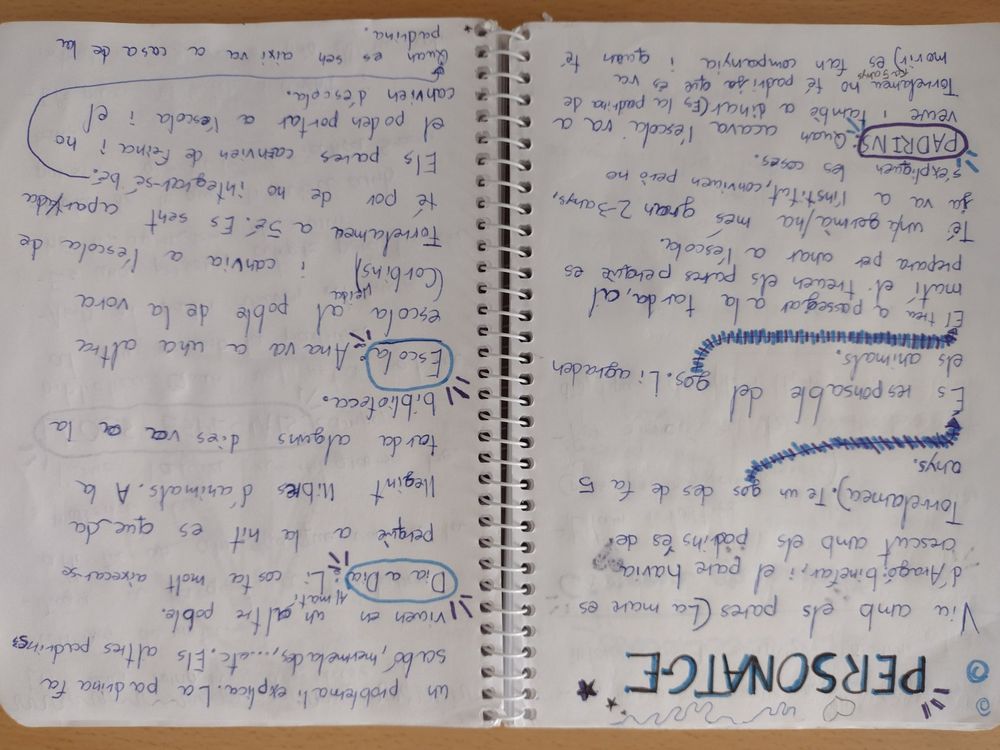 PERSONATGE
Viu amb els pares (La mare es
d'Aragó, binefar, i el pare havia
crescut amb els padrins és de
Torrelamea). Te un gos des de fa 5
anys.
Es responsable del gos. Li agraden
els animals.
El treu a passejar a la tarda, al
matí el treuen els pares perquè es
prepara per anar a l'escola.
Té un/a germà/na més gran 2-3 anys,
ja va a l'institut, conviuen però no
s'expliquen les coses.
PADRINS: Quan acava l'escola va a
veure i també a dinar (Es la padrina de
Torrelamea no té padri ja que es va
fa 5 anys
morir) es fan companyia i quan té
un problema li explica. La padrina fa
sabó, mermelades,...,etc. Els altres padrins
viuen en un altre poble.
Al matí
Dia a Dia: Li costa molt aixecar-se
perquè a la nit es que da
llegint llibres d'animals. A la
tarda alguns dies va a la
biblioteca.
Escola: Ana va a una altre
escola al poble de la vora
lleida
(Corbins) i canvia a l'escola de
Torrelamea a 5è. Es sent apartada
té por de no integrar-se bé.
Els pares canvien de feina i no
el poden portar a l'escola i el
canvien d'escola.
Quan es sen així va a casa de la
padrina.